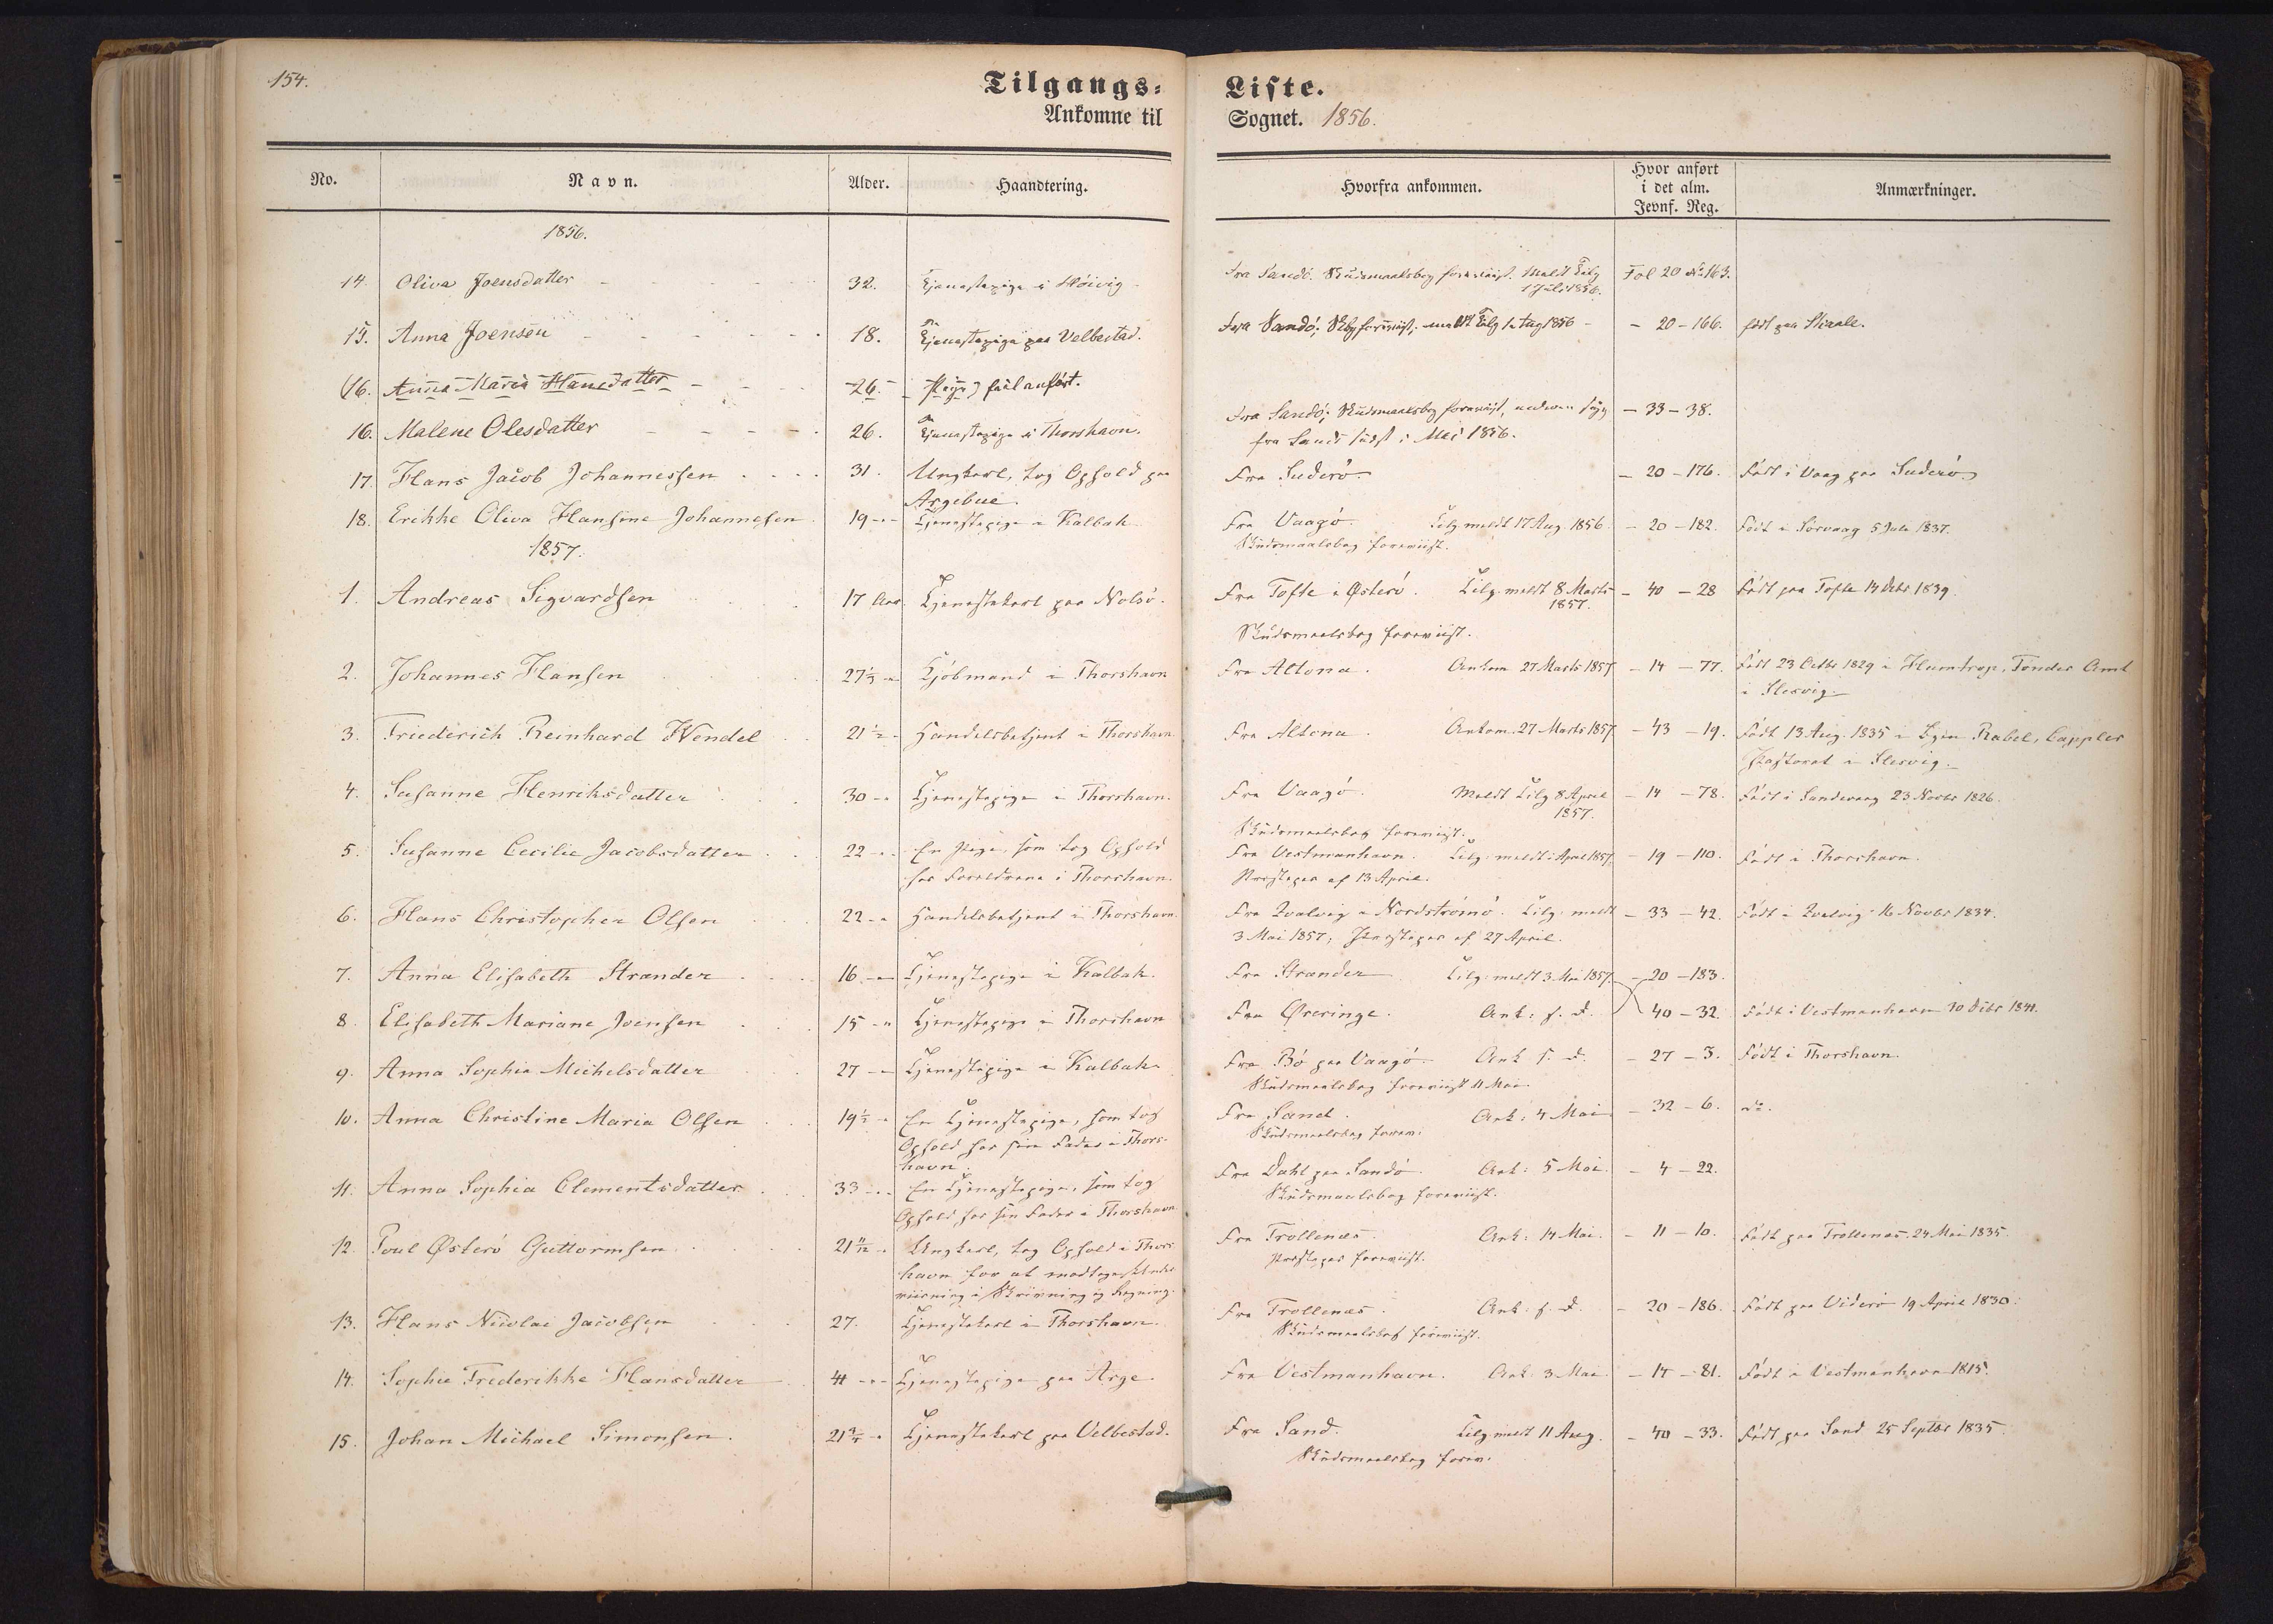 154.
Tilgangs-Liste.
Ankomne til Sognet. 1856.
No. Navn. Alder. Haandtering. Hvorfra ankommen. Hvor anført i det alm. Jevnf. Reg. Anmærkninger.
1856.
14. Oliva Joensdatter 32. Tjenestepige i Høivig Fra Sandö. Skudsmaalsbog foreviist. Meldt Tilg Fol 20 № 163.
1 Juli 1856.
15. Anna Joensen 18. Tjenestepige paa Velbestad. Fra Sandö; Skbg foreviist, meldt Tilg 1 Aug 1856 - 20 - 166. født paa Skaale.
16. Anna Maria Hansdatter 26. Pige) feil anført.
16. Malene Olesdatter 26. Tjenestepige i Thorshavn. Fra Sandö; Skudsmaalsbog foreviist, - 33 - 38.
fra Sand sidst i Mei 1856.
17. Hans Jacob Johannessen 31. Ungkarl, tog Ophold paa Fra Suderö - 20 - 176. Født i Vaag paa Suderö
Argebue.
18. Erikke Oliva Hansine Johannesen 19 - " - Tjenestepige i Kalbak Fra Vaagö. Tilg meldt 17 Aug. 1856 - 20 - 182. Født i Sörvaag 5 Jula 1837.
Skudsmaalsbog foreviist.
1857.
1. Andreas Sigvardsen 17 Aar. Tjenestekarl paa Nolsö. Fra Tofte i Østerö. Tilg. meldt 8 Marts - 40 - 28 Født paa Tofte 14 Debr 1839.
1857.
Skudsmaalsbog foreviist.
2. Johannes Hansen 27½ - " Kjöbmand i Thorshavn Fra Altona. Ankom 27 Marts 1857 - 14 - 77. Født 23 Octbr 1829 i Humtrup, Tønder Amt
i Slesvig.
3. Friederich Reinhard Wendel 21½ - Handelsbetjent i Thorshavn Fra Altona. Ankom. 27 Marts 1857 - 43 - 19. Født 13 Aug. 1835 i Byen Rabel, Cappler
Pastorat i Slesvig.
4. Susanne Henriksdatter 30 - " Tjenestepige i Thorshavn. Fra Vaagö. Meldt Tilg 8 April - 14 - 78. Født i Sandevaag 23 Novbr 1826.
1857.
Skudsmaalsbog foreviist.
5. Susanne Cecilie Jacobsdatter 22 - " En Pige, som tog Ophold Fra Vestmanhavn. Tilg. meldt i April 1857. - 19 - 110. Født i Thorshavn.
hos Forældrene i Thorshavn. Præstepas af 13 April.
6. Hans Christopher Olsen 22 - " Handelsbetjent i Thorshavn. Fra Qvalvig i Nordströmö. Tilg. meldt - 33 - 42. Født i Qvalvig 16 Novbr 1834.
3 Mai 1857, Præstepas af 27 April.
7. Anna Elisabeth Strænder 16 - " Tjenestepige i Kalbak. Fra Strænder Tilg. meldt 3 Mai 1857. - 20 - 183.
8. Elisabeth Mariane Joensen 15 - " Tjenestepige i Thorshavn Fra Øreringe. Ank: s. D. 40 - 32. Født i Vestmanhavn 30 Debr 1841.
9. Anna Sophia Michelsdatter 27 - Tjenestepige i Kalbak Fra Bö paa Vaagö. Ank s. D. - 27 - 3. Født i Thorshavn.
Skudsmaalsbog foreviist 11 Mai
10. Anna Christine Maria Olsen 19½ - " En Tjenestepige, som tog Fra Sand. Ank: 4 Mai - 32 - 6. do.
Ophold hos sin Fader i Thors- Skudsmaalsbog forev.
havn.
11. Anna Sophia Clementsdatter 33 - " En Tjenestepige, som tog Fra Dahl paa Sandö. Ank: 5 Mai. - 4 - 22.
Ophold hos sin Fader i Thorshavn. Skudsmaalsbog foreviist.
12. Poul Østerö Guttormsen 21 11/12 - " Ungkarl, tog Ophold i Thors Fra Trollenæs. Ank: 14 Mai. - 11 - 10. Født paa Trollenæs 24 Mai 1835.
havn for at modtage Under Præstepas foreviist.
viisning i Skrivning og Regning.
13. Hans Nicolai Jacobsen 27. Tjenestekarl i Thorshavn. Fra Trollenæs. Ank. s. D. - 20 - 186. Født paa Viderö 19 April 1830.
Skudsmaalsbog foreviist.
14. Sophie Frederikke Hansdatter 41 - " Tjenestepige paa Arge Fra Vestmanhavn. Ank. 3 Mai. - 14 - 81. Født i Vestmanhavn 1815.
15. Johan Michael Simonsen. 21¾ - " Tjenestekarl paa Velbestad. Fra Sand. Tilg. meldt 11 Aug. - 40 - 33. Født paa Sand 25 Septbr 1835.
Skudsmaalsbog forev.